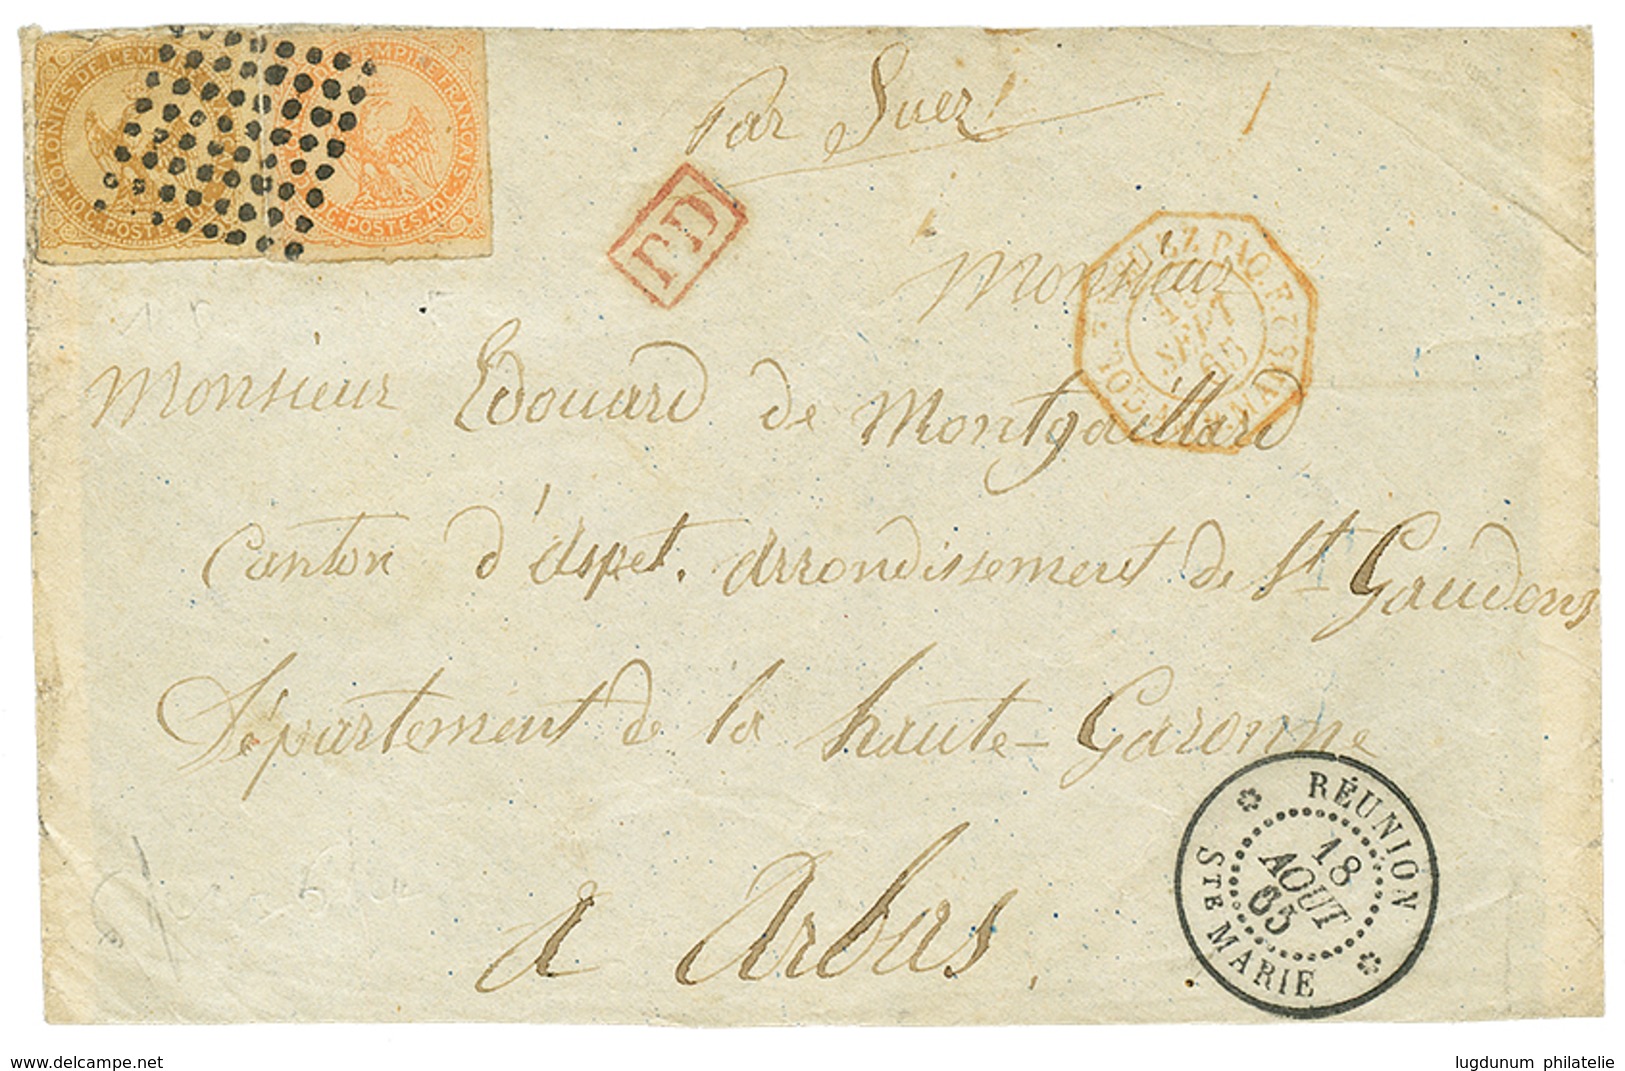 COLONIES DE L'EMPIRE FRANÇAIS
10 C. POSTES
EMPIRE FRANÇAIS
C. POSTES. 40 C.
Par Suez
PD
Monsieur
SEPT
65
Monsieur Edouard de Montgaillard
Canton d'Aspet. Arrondissement de St Gaudens
Département de la haute-Garonne
à Arbas
RÉUNION
18
AOUT
65
STE MARIE
www.delcampe.net
lugdunum philatelie